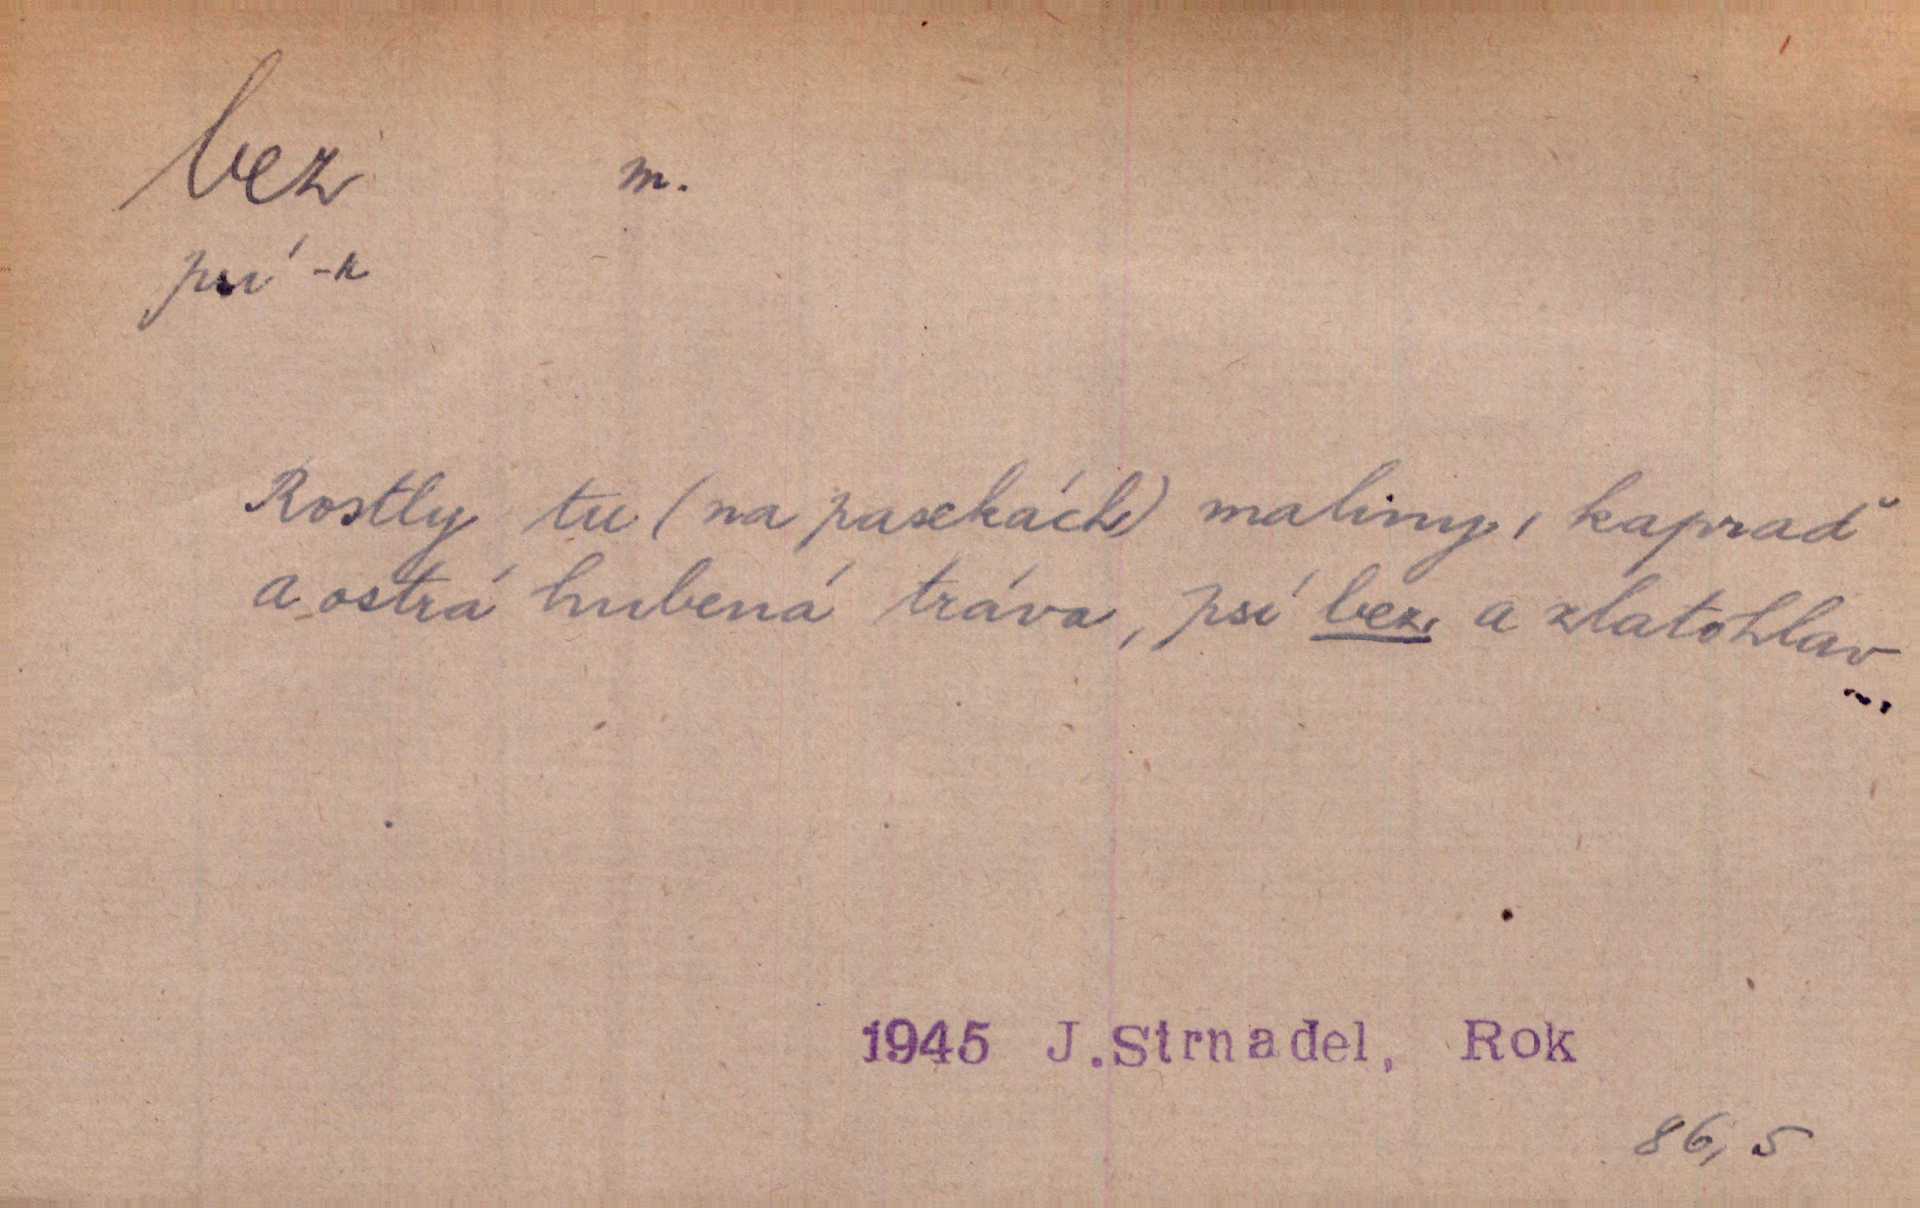 bez m.
psí -k
Rostly tu (na pasekách) maliny, kapraď
a ostrá hubená tráva, psí bez a zlatohlav
...
1945 J.Strnadel, Rok
86,5